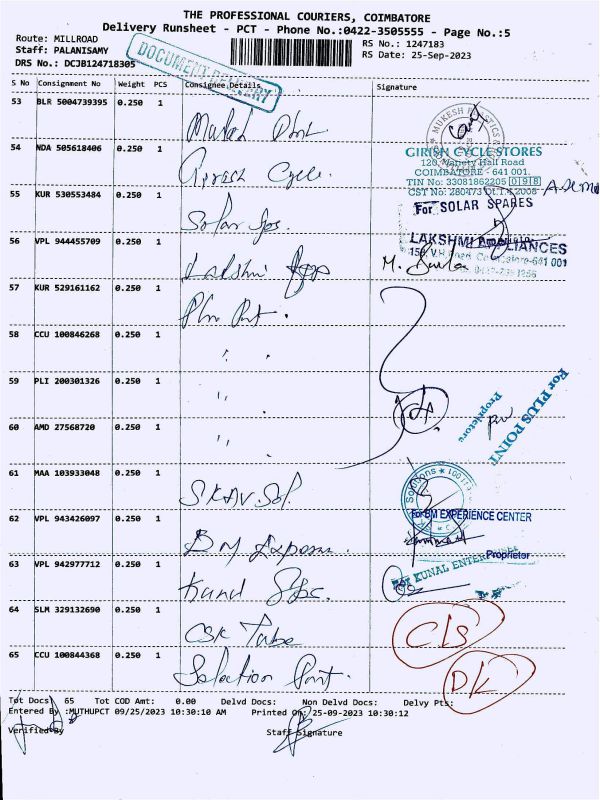 THE PROFESSIONAL COURIERS, COIMBATORE
Delivery Runsheet - PCT - Phone No.:0422-3505555 - Page No.:5
Route: MILLROAD
RS No.: 1247183
Staff: PALANISAMY
RS Date: 25-Sep-2023
DRS No.: DCJB124718305
DOCUMENT DELIVERY
S No Consignment No Weight PCS Consignee Details Signature
53 BLR 5004739395 0.250 1
54 NDA 505618406 0.250 1 Girish Cycle.
GIRISH CYCLE STORES
120, Variety Hall Road
COIMBATORE - 641 001.
TIN No: 33081862205
55 KUR 530553484 0.250 1 Solar Sps.
For SOLAR SPARES
56 VPL 944455709 0.250 1 Lakshmi App
LAKSHMI APPLIANCES
57 KUR 529161162 0.250 1
58 CCU 100846268 0.250 1 ,,
59 PLI 200301326 0.250 1 ,,
60 AMD 27568720 0.250 1 ,,
For PLUS POINT
Proprietore
61 MAA 103933048 0.250 1
62 VPL 943426097 0.250 1
For BM EXPERIENCE CENTER
Proprietor
63 VPL 942977712 0.250 1
64 SLM 329132690 0.250 1 CSK Tube
CLS
65 CCU 100844368 0.250 1
DK
Tot Docs: 65 Tot COD Amt: 0.00 Delvd Docs: Non Delvd Docs: Delvy Pts:
Entered By :MUTHUPCT 09/25/2023 10:30:10 AM Printed On: 25-09-2023 10:30:12
Verified By Staff Signature